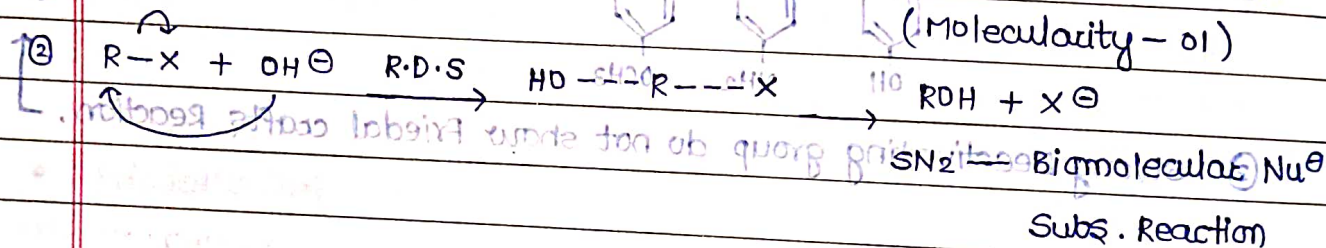 (Molecularity - 01)
② R-X + OH⊖ R.D.S → HO---R---X → ROH + X⊖
SN2 — Bigmolecular Nu⊖
Subs. Reaction